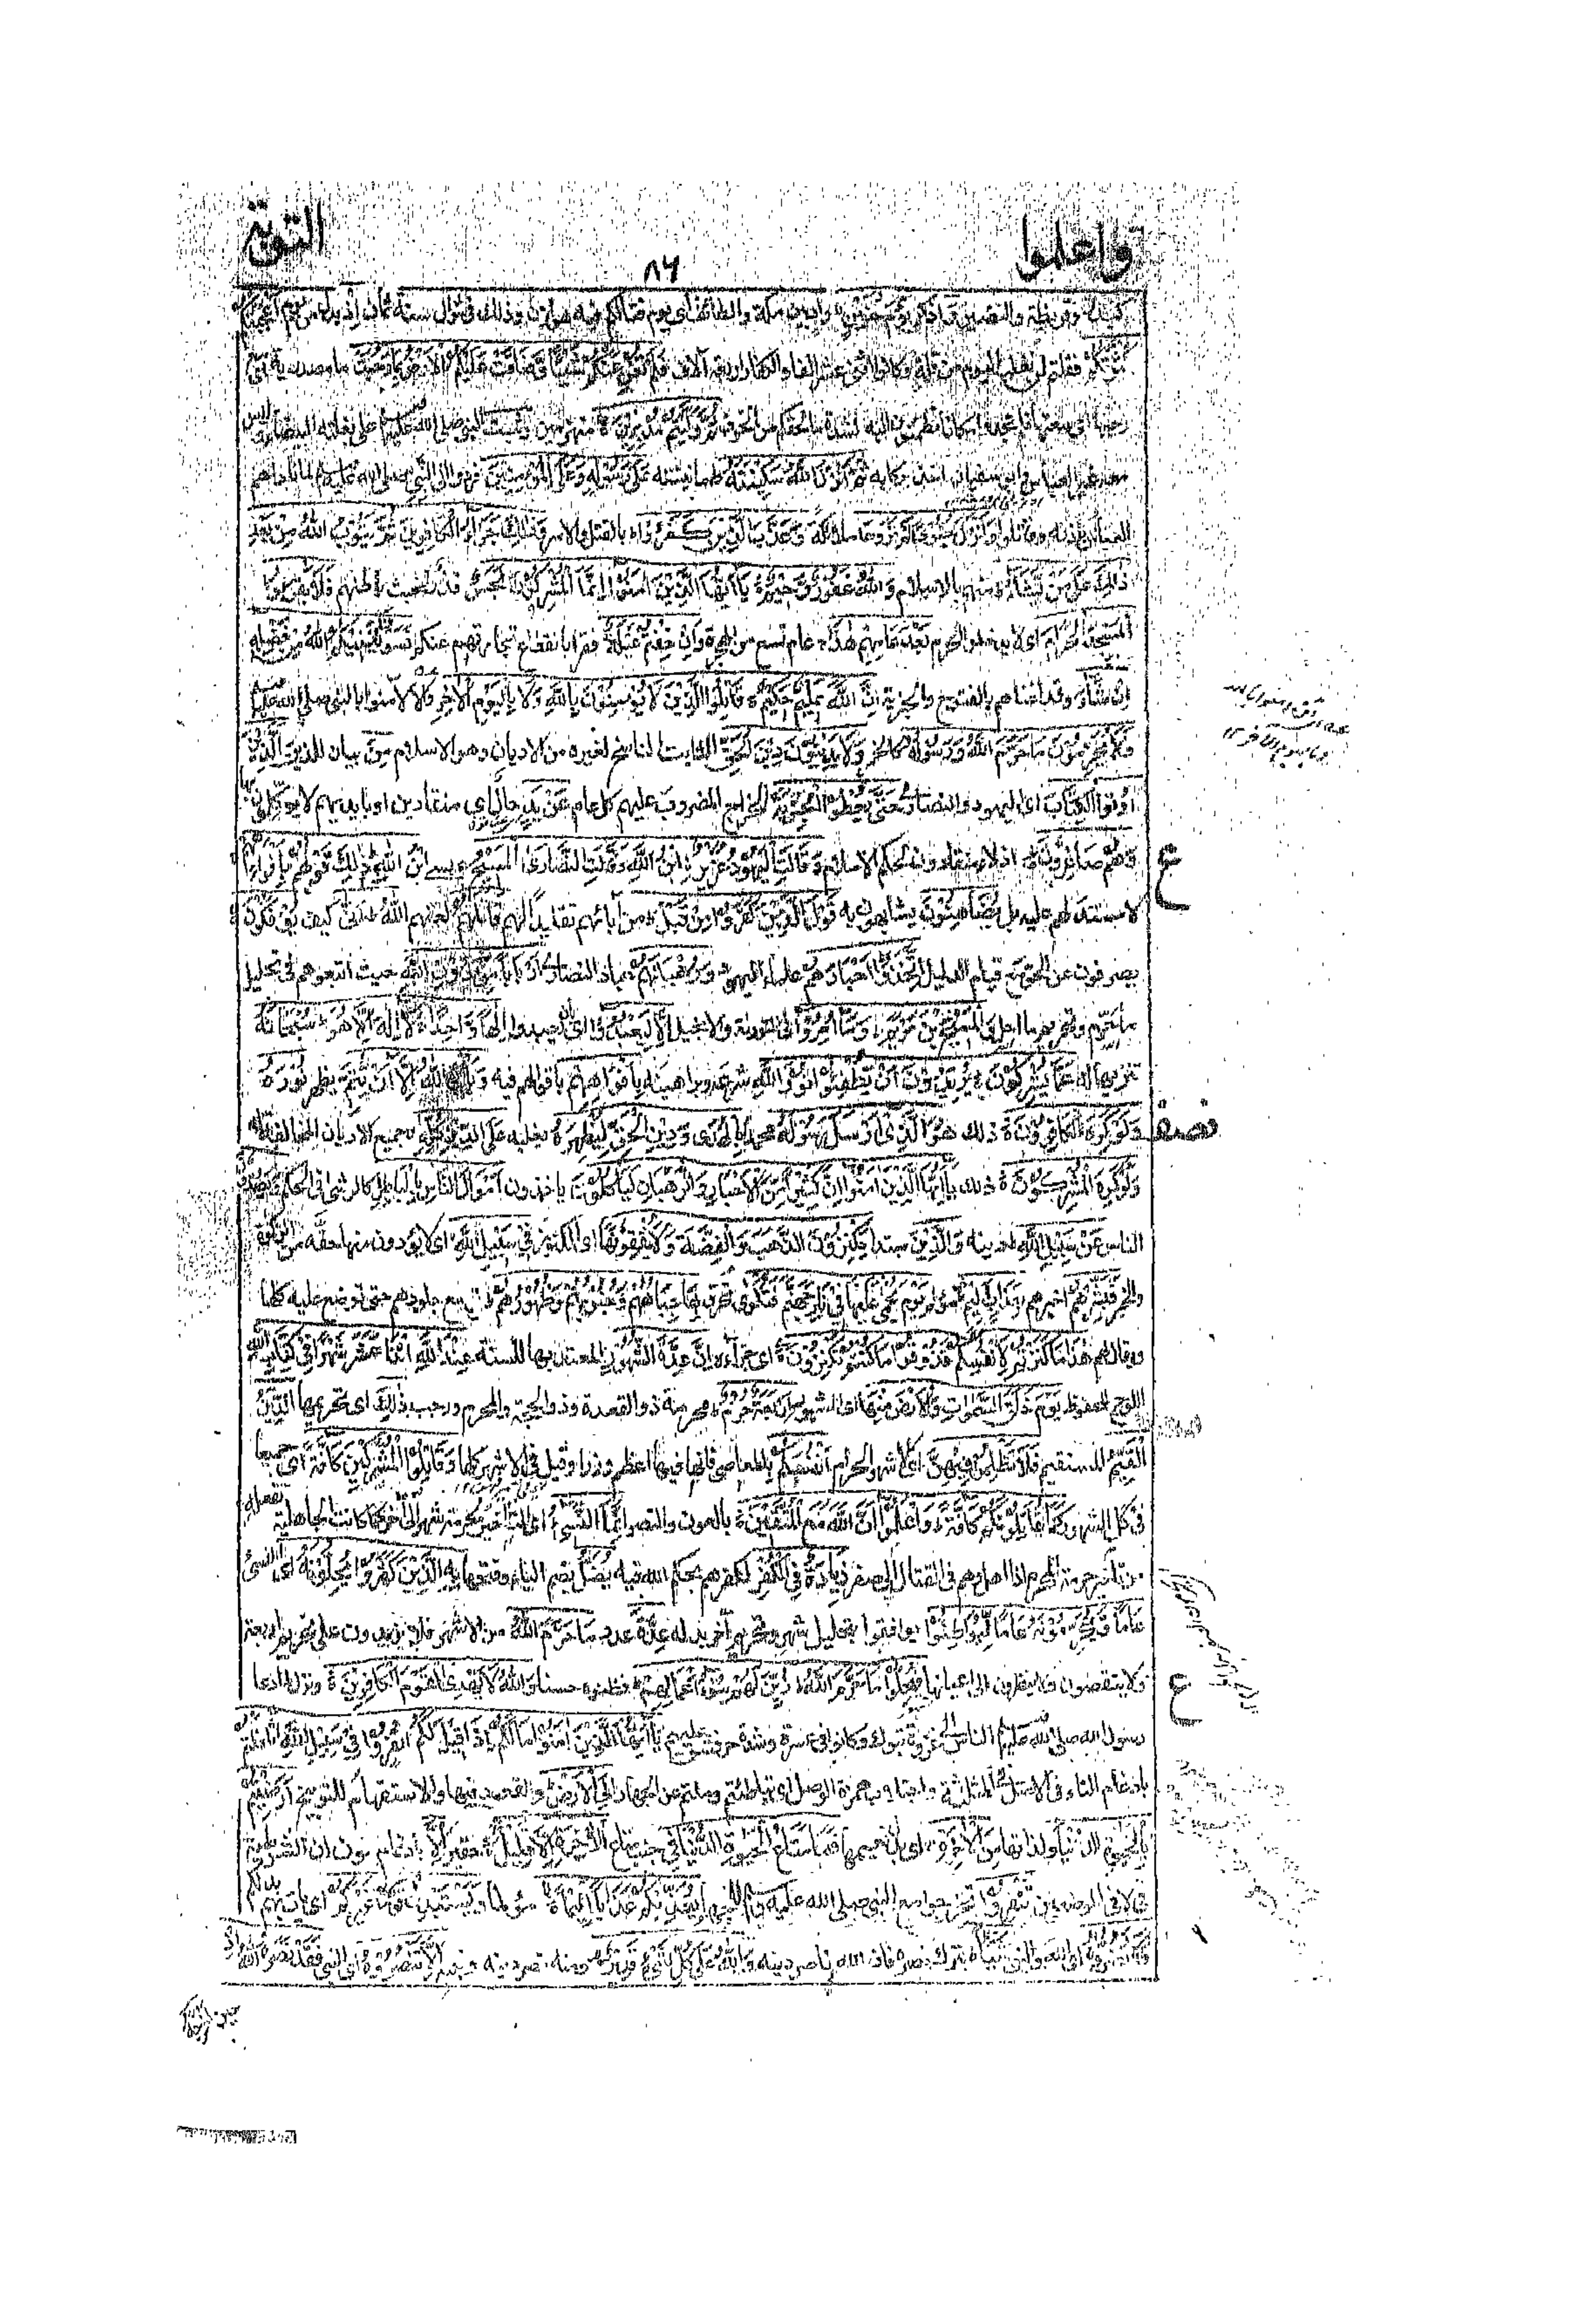 واعلموا
٨٦
التوبة
كبدر وقريظة والنضير وَاذكر يَوْمَ حُنَيْنٍ واد بين مكة والطائف اى يوم قتالكم فيه هوازن وذلك فى شوال سنة ثمان إِذْ بدل من يوم أَعْجَبَتْكُمْ
كَثْرَتُكُمْ فقلتم لن نغلب اليوم من قلة وكانوا اثنى عشر الفا والكفار اربعة آلاف فَلَمْ تُغْنِ عَنْكُمْ شَيْئًا وَّضَاقَتْ عَلَيْكُمُ الْاَرْضُ بِمَا رَحُبَتْ ما مصدرية اى مع
رحبها اى سعتها فلم تجدوا مكانا تطمئنون اليه لشدة ما لحقكم من الخوف ثُمَّ وَلَّيْتُمْ مُدْبِرِيْنَ منهزمين وثبت النبى صلى الله عليه وسلم على بغلته البيضاء وليس
معه غير العباس وابو سفيان اخذ بركابه ثُمَّ اَنْزَلَ اللّٰهُ سَكِيْنَتَهٗ طمانينته عَلٰى رَسُوْلِهٖ وَعَلَى الْمُؤْمِنِيْنَ فردوا الى النبى صلى الله عليه وسلم لما ناداهم
العباس باذنه وقاتلوا وَاَنْزَلَ جُنُوْدًا لَّمْ تَرَوْهَا ملائكة وَعَذَّبَ الَّذِيْنَ كَفَرُوْا بالقتل والاسر وَذٰلِكَ جَزَاءُ الْكَافِرِيْنَ ثُمَّ يَتُوْبُ اللّٰهُ مِنْ بَعْدِ
ذٰلِكَ عَلٰى مَنْ يَّشَاءُ منهم بالاسلام وَاللّٰهُ غَفُوْرٌ رَّحِيْمٌ يَا اَيُّهَا الَّذِيْنَ اٰمَنُوْا اِنَّمَا الْمُشْرِكُوْنَ نَجَسٌ قذر لخبث باطنهم فَلَا يَقْرَبُوا
الْمَسْجِدَ الْحَرَامَ اى لا يدخلوا الحرم بَعْدَ عَامِهِمْ هٰذَا عام تسع من الهجرة وَاِنْ خِفْتُمْ عَيْلَةً فقرا بانقطاع تجارتهم عنكم فَسَوْفَ يُغْنِيْكُمُ اللّٰهُ مِنْ فَضْلِهٖ
اِنْ شَاءَ وقد اغناهم بالفتوح والجزية اِنَّ اللّٰهَ عَلِيْمٌ حَكِيْمٌ قَاتِلُوا الَّذِيْنَ لَا يُؤْمِنُوْنَ بِاللّٰهِ وَلَا بِالْيَوْمِ الْاٰخِرِ والا لآمنوا بالنبى صلى الله عليه وسلم
وَلَا يُحَرِّمُوْنَ مَا حَرَّمَ اللّٰهُ وَرَسُوْلُهٗ كالخمر وَلَا يَدِيْنُوْنَ دِيْنَ الْحَقِّ الثابت الناسخ لغيره من الاديان وهو الاسلام مِنَ بيان للذين الَّذِيْنَ
اُوْتُوا الْكِتَابَ اى اليهود والنصارى حَتّٰى يُعْطُوا الْجِزْيَةَ الخراج المضروب عليهم كل عام عَنْ يَدٍ حال اى منقادين او بايديهم لا يوكلون بها
وَهُمْ صَاغِرُوْنَ اذلاء منقادون لحكم الاسلام وَقَالَتِ الْيَهُوْدُ عُزَيْرٌ ابْنُ اللّٰهِ وَقَالَتِ النَّصَارَى الْمَسِيْحُ عيسى ابْنُ اللّٰهِ ذٰلِكَ قَوْلُهُمْ بِاَفْوَاهِهِمْ
لا مستند لهم عليه بل يُضَاهِئُوْنَ يشابهون به قَوْلَ الَّذِيْنَ كَفَرُوْا مِنْ قَبْلُ من آبائهم تقليدا لهم قَاتَلَهُمُ لعنهم اللّٰهُ اَنّٰى كيف يُؤْفَكُوْنَ
يصرفون عن الحق مع قيام الدليل اِتَّخَذُوْا اَحْبَارَهُمْ علماء اليهود وَرُهْبَانَهُمْ عباد النصارى اَرْبَابًا مِّنْ دُوْنِ اللّٰهِ حيث اتبعوهم فى تحليل
ما حرم وتحريم ما احل وَالْمَسِيْحَ ابْنَ مَرْيَمَ وَمَا اُمِرُوْا فى التورية والانجيل اِلَّا لِيَعْبُدُوْا اى بان يعبدوا اِلٰهًا وَّاحِدًا لَا اِلٰهَ اِلَّا هُوَ سُبْحَانَهٗ
تنزيها له عَمَّا يُشْرِكُوْنَ يُرِيْدُوْنَ اَنْ يُّطْفِئُوْا نُوْرَ اللّٰهِ شرعه وبراهينه بِاَفْوَاهِهِمْ باقوالهم فيه وَيَاْبَى اللّٰهُ اِلَّا اَنْ يُّتِمَّ يظهر نُوْرَهٗ
وَلَوْ كَرِهَ الْكَافِرُوْنَ ذلك هُوَ الَّذِيْ اَرْسَلَ رَسُوْلَهٗ محمدا بِالْهُدٰى وَدِيْنِ الْحَقِّ لِيُظْهِرَهٗ يعليه عَلَى الدِّيْنِ كُلِّهٖ جميع الاديان المخالفة له
نصف
وَلَوْ كَرِهَ الْمُشْرِكُوْنَ ذلك يَا اَيُّهَا الَّذِيْنَ اٰمَنُوْا اِنَّ كَثِيْرًا مِّنَ الْاَحْبَارِ وَالرُّهْبَانِ لَيَاْكُلُوْنَ ياخذون اَمْوَالَ النَّاسِ بِالْبَاطِلِ كالرشى فى الحكم وَيَصُدُّوْنَ
الناس عَنْ سَبِيْلِ اللّٰهِ دينه وَالَّذِيْنَ مبتدا يَكْنِزُوْنَ الذَّهَبَ وَالْفِضَّةَ وَلَا يُنْفِقُوْنَهَا اى الكنوز فِيْ سَبِيْلِ اللّٰهِ اى لا يؤدون منها حقه من الزكوة
والخير فَبَشِّرْهُمْ اخبرهم بِعَذَابٍ اَلِيْمٍ مؤلم يَوْمَ يُحْمٰى عَلَيْهَا فِيْ نَارِ جَهَنَّمَ فَتُكْوٰى تحرق بِهَا جِبَاهُهُمْ وَجُنُوْبُهُمْ وَظُهُوْرُهُمْ وتوسع جلودهم حتى توضع عليه كلها
ويقال لهم هٰذَا مَا كَنَزْتُمْ لِاَنْفُسِكُمْ فَذُوْقُوْا مَا كُنْتُمْ تَكْنِزُوْنَ اى جزاءه اِنَّ عِدَّةَ الشُّهُوْرِ المعتد بها للسنة عِنْدَ اللّٰهِ اثْنَا عَشَرَ شَهْرًا فِيْ كِتَابِ اللّٰهِ
اللوح المحفوظ يَوْمَ خَلَقَ السَّمٰوَاتِ وَالْاَرْضَ مِنْهَا اى الشهور اَرْبَعَةٌ حُرُمٌ محرمة ذو القعدة وذو الحجة والمحرم ورجب ذٰلِكَ اى تحريمها الدِّيْنُ
الْقَيِّمُ المستقيم فَلَا تَظْلِمُوْا فِيْهِنَّ اى الاشهر الحرم اَنْفُسَكُمْ بالمعاصى فانها فيها اعظم وزرا وقيل فى الاشهر كلها وَقَاتِلُوا الْمُشْرِكِيْنَ كَافَّةً اى جميعا
فى كل الشهور كَمَا يُقَاتِلُوْنَكُمْ كَافَّةً وَاعْلَمُوْا اَنَّ اللّٰهَ مَعَ الْمُتَّقِيْنَ بالعون والنصر اِنَّمَا النَّسِيْءُ اى التاخير لحرمة شهر الى آخر كما كانت الجاهلية تفعله
من تاخير حرمة المحرم اذا اهل وهم فى القتال الى صفر زِيَادَةٌ فِى الْكُفْرِ لكفرهم بحكم الله فيه يُضَلُّ بضم الياء وفتحها بِهِ الَّذِيْنَ كَفَرُوْا يُحِلُّوْنَهٗ اى النسىء
عَامًا وَّيُحَرِّمُوْنَهٗ عَامًا لِّيُوَاطِئُوْا يوافقوا بتحليل شهر وتحريم آخر بدله عِدَّةَ عدد مَا حَرَّمَ اللّٰهُ من الاشهر فلا يزيدون على تحريم اربعة
ولا ينقصون ولا ينظرون الى اعيانها فَيُحِلُّوْا مَا حَرَّمَ اللّٰهُ زُيِّنَ لَهُمْ سُوْءُ اَعْمَالِهِمْ فظنوه حسنا وَاللّٰهُ لَا يَهْدِى الْقَوْمَ الْكَافِرِيْنَ ونزل لما دعا
رسول الله صلى الله عليه وسلم الناس الى غزوة تبوك وكانوا فى عسرة وشدة حر فشق عليهم يَا اَيُّهَا الَّذِيْنَ اٰمَنُوْا مَا لَكُمْ اِذَا قِيْلَ لَكُمُ انْفِرُوْا فِيْ سَبِيْلِ اللّٰهِ اثَّاقَلْتُمْ
بادغام التاء فى الاصل فى المثلثة واجتلاب همزة الوصل اى تباطئتم وملتم عن الجهاد اِلَى الْاَرْضِ والقعود فيها والاستفهام للتوبيخ اَرَضِيْتُمْ
بِالْحَيٰوةِ الدُّنْيَا ولذاتها مِنَ الْاٰخِرَةِ اى بدل نعيمها فَمَا مَتَاعُ الْحَيٰوةِ الدُّنْيَا فِى جنب متاع الْاٰخِرَةِ اِلَّا قَلِيْلٌ حقير اِلَّا بادغام نون ان الشرطية
فى لا فى الموضعين تَنْفِرُوْا تخرجوا مع النبى صلى الله عليه وسلم للجهاد يُعَذِّبْكُمْ عَذَابًا اَلِيْمًا مؤلما وَّيَسْتَبْدِلْ قَوْمًا غَيْرَكُمْ اى يات بهم بدلكم
وَلَا تَضُرُّوْهُ اى الله والنبى شَيْئًا بترك نصره فان الله ناصر دينه وَاللّٰهُ عَلٰى كُلِّ شَيْءٍ قَدِيْرٌ ومنه نصر دينه ونبيه اِلَّا تَنْصُرُوْهُ اى النبى فَقَدْ نَصَرَهُ اللّٰهُ اِذْ